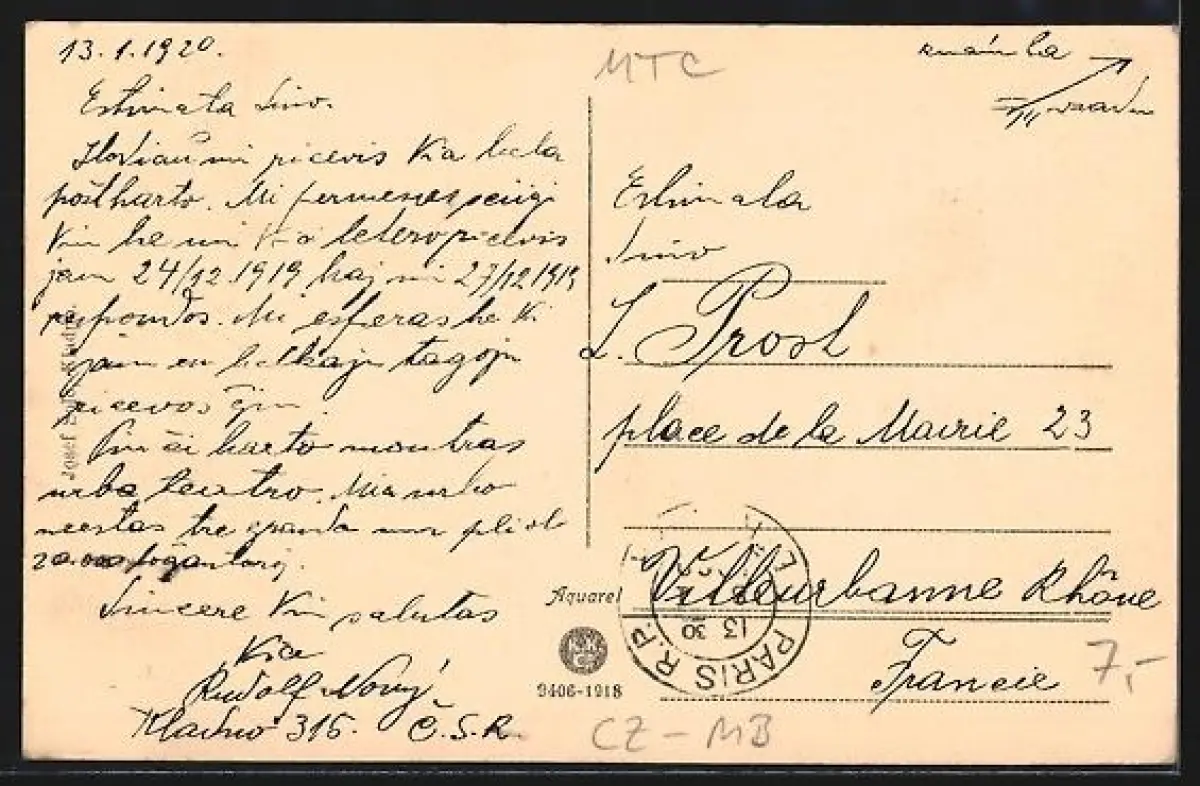 13.1.1920.
Estimata Sinо.
Hodiaŭ mi ricevis Vian
poŝtkarto. Mi permesas sciigi
Vin ke mi Vian leteron ricevis
jam 24/12 1919 kaj mi 27/12 1919
respondos. Mi esperas ke Vi
jam en kelkaj tagoj
ricevos ĝin.
Tiu ĉi karto montras
urba teatro. Mia urbo
ne estas tre granda nur pli ol
20.000 loĝantoj.
Sincere Vin salutas
Via
Rudolf Nový
Kladno 316. Č.S.R.
MTC
Estimata
Sino
L. Prost
place de la Mairie 23
Villeurbanne Rhône
Francie
7,-
PARIS R.P.
13 30
Aquarel
9406-1918
CZ-MB
Josef